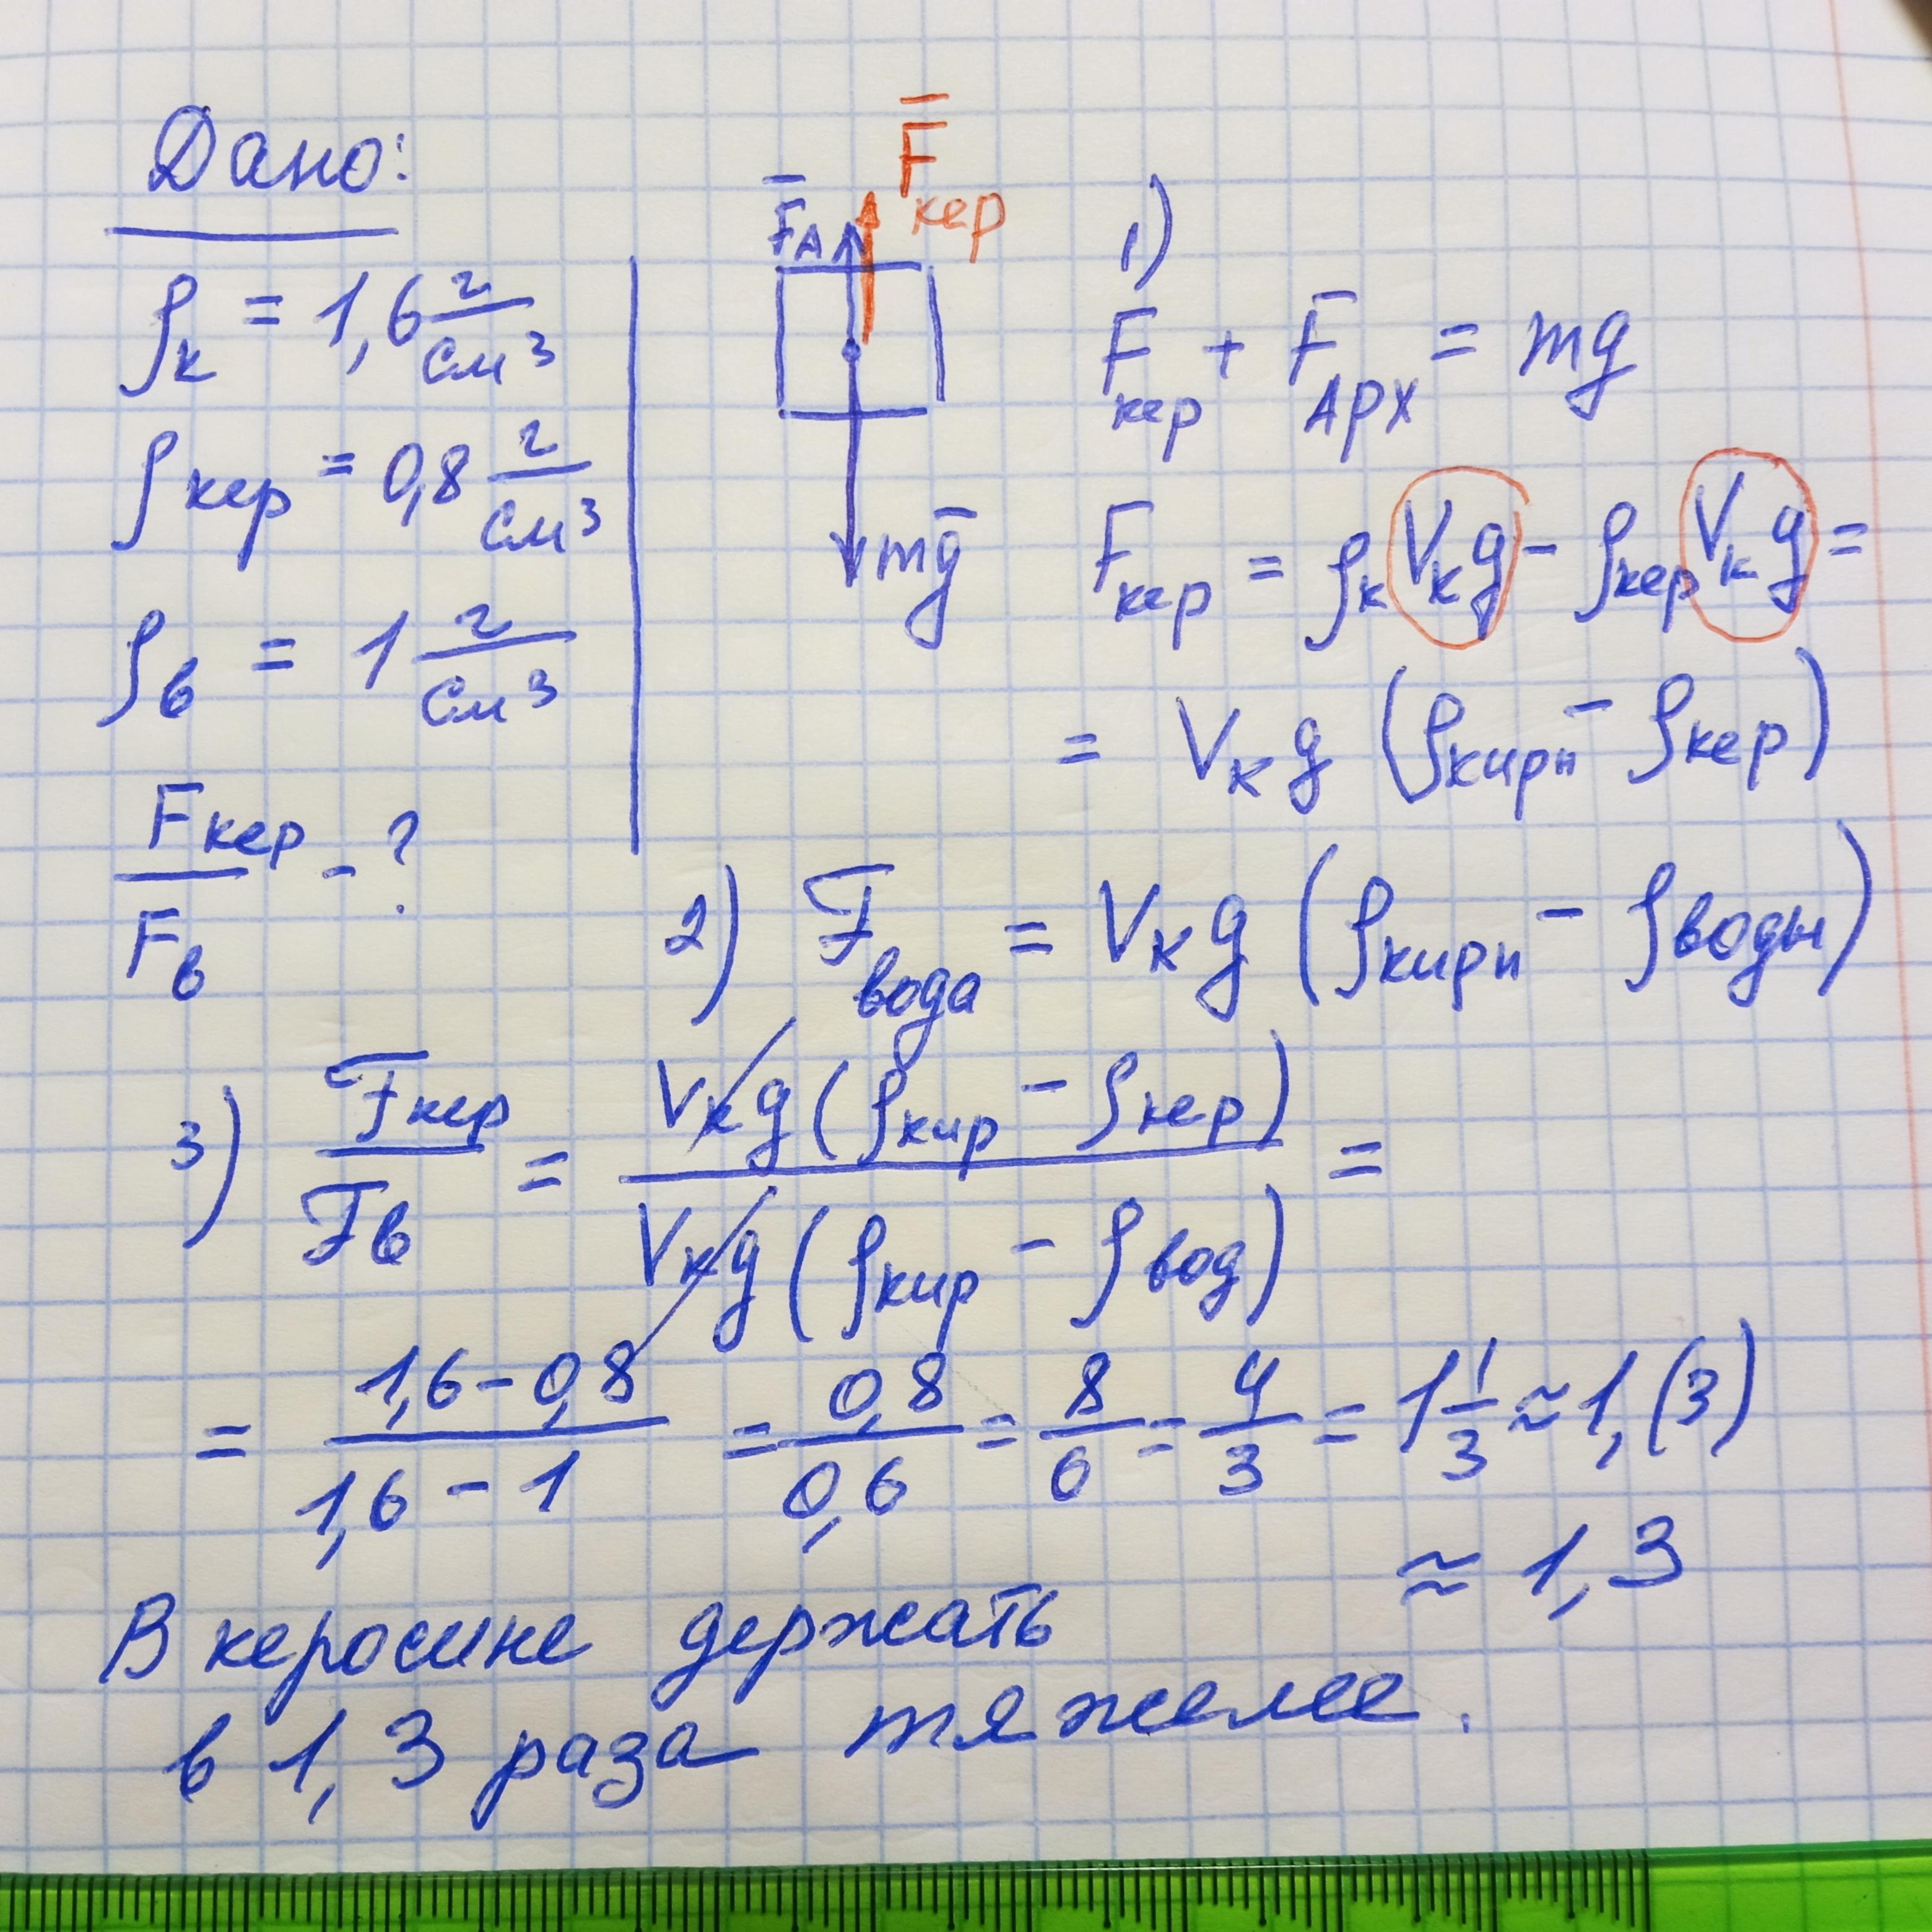 Дано:
ρк = 1,6 г/см³
ρкер = 0,8 г/см³
ρв = 1 г/см³
Fкер/Fв - ?
F̅кер
F̅А
mg̅
1)
Fкер + F̅Арх = mg
Fкер = ρк Vк g - ρкер Vк g =
= Vк g (ρкирп - ρкер)
2) Fвода = Vк g (ρкирп - ρводы)
3) Fкер/Fв = Vкg(ρкир - ρкер)/Vкg(ρкир - ρвод) =
= 1,6-0,8/1,6-1 = 0,8/0,6 = 8/6 = 4/3 = 1 1/3 ≈ 1,(3)
≈ 1,3
В керосине держать
в 1,3 раза тяжелее.